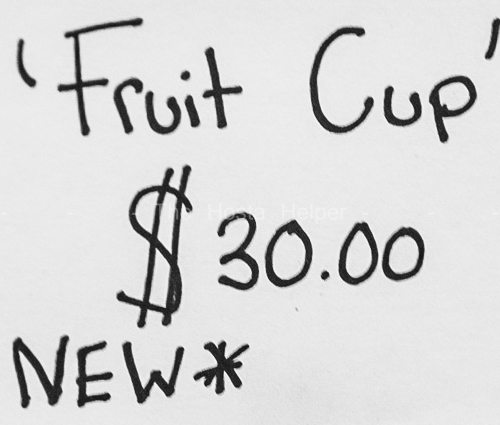 'Fruit Cup'
$30.00
- The Hosta Helper -
NEW*